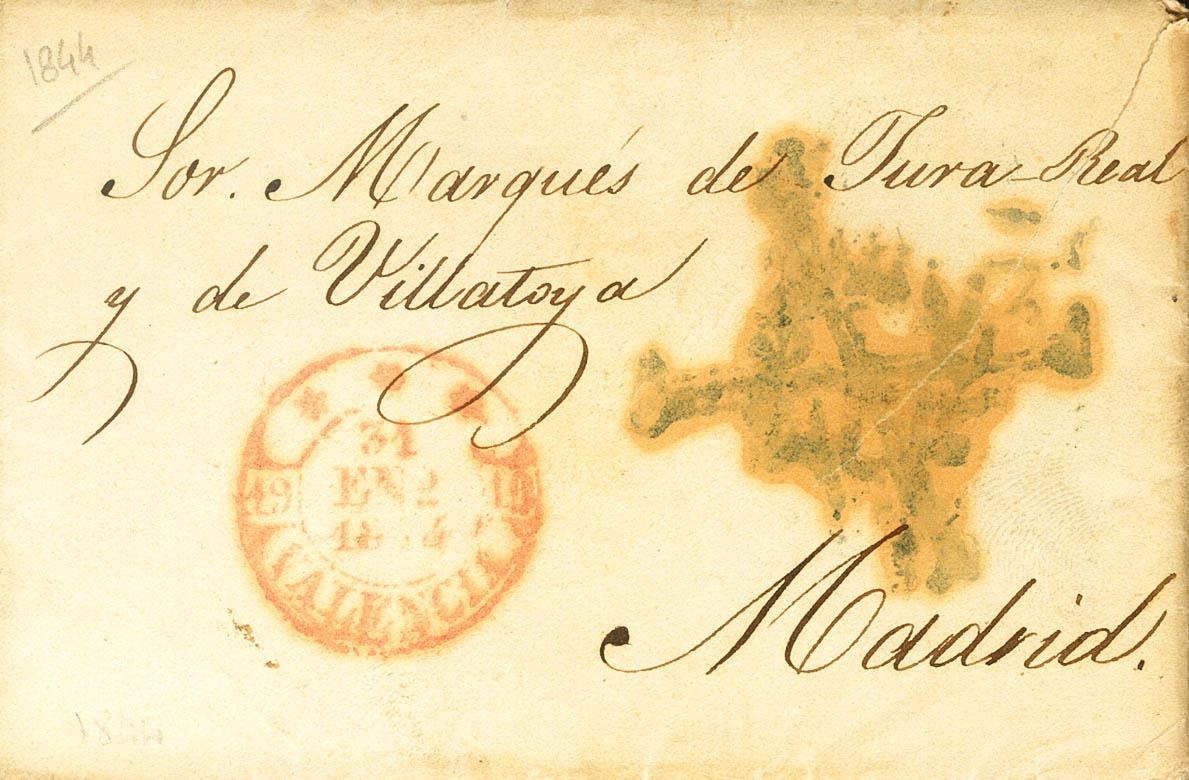 1844
Sor. Marqués de Jura-Real
y de Villatoya
31
ENE
1844
19 10
VALENCIA
Madrid.
1844